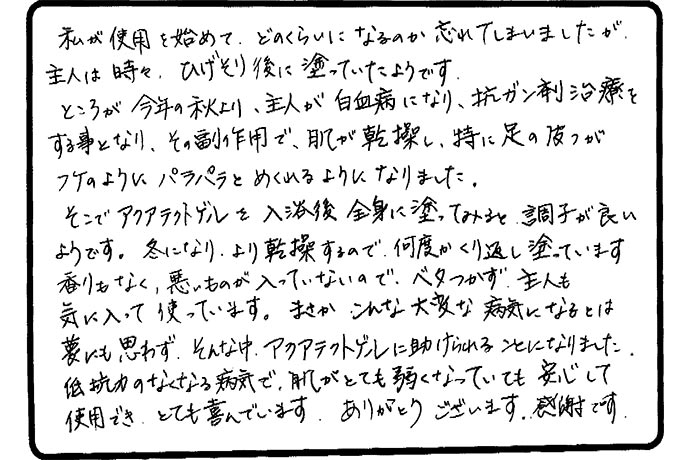 私が使用を始めて、どのくらいになるのか忘れてしまいましたが、
主人は時々、ひげそり後に塗っていたようです。
ところが今年の秋より、主人が白血病になり、抗ガン剤治療を
する事となり、その副作用で、肌が乾操し、特に足の皮フが
フケのようにパラパラとめくれるようになりました。
そこでアクアテクトゲルを入浴後全身に塗ってみると、調子が良い
ようです。冬になり、より乾操するので、何度かくり返し塗っています
香りもなく、悪いものが入っていないので、ベタつかず、主人も
気に入って使っています。まさかこんな大変な病気になるとは
夢にも思わず、そんな中、アクアテクトゲルに助けられることになりました。
低抗力のなくなる病気で、肌がとても弱くなっていても安心して
使用でき、とても喜んでいます。ありがとうございます。感謝です。